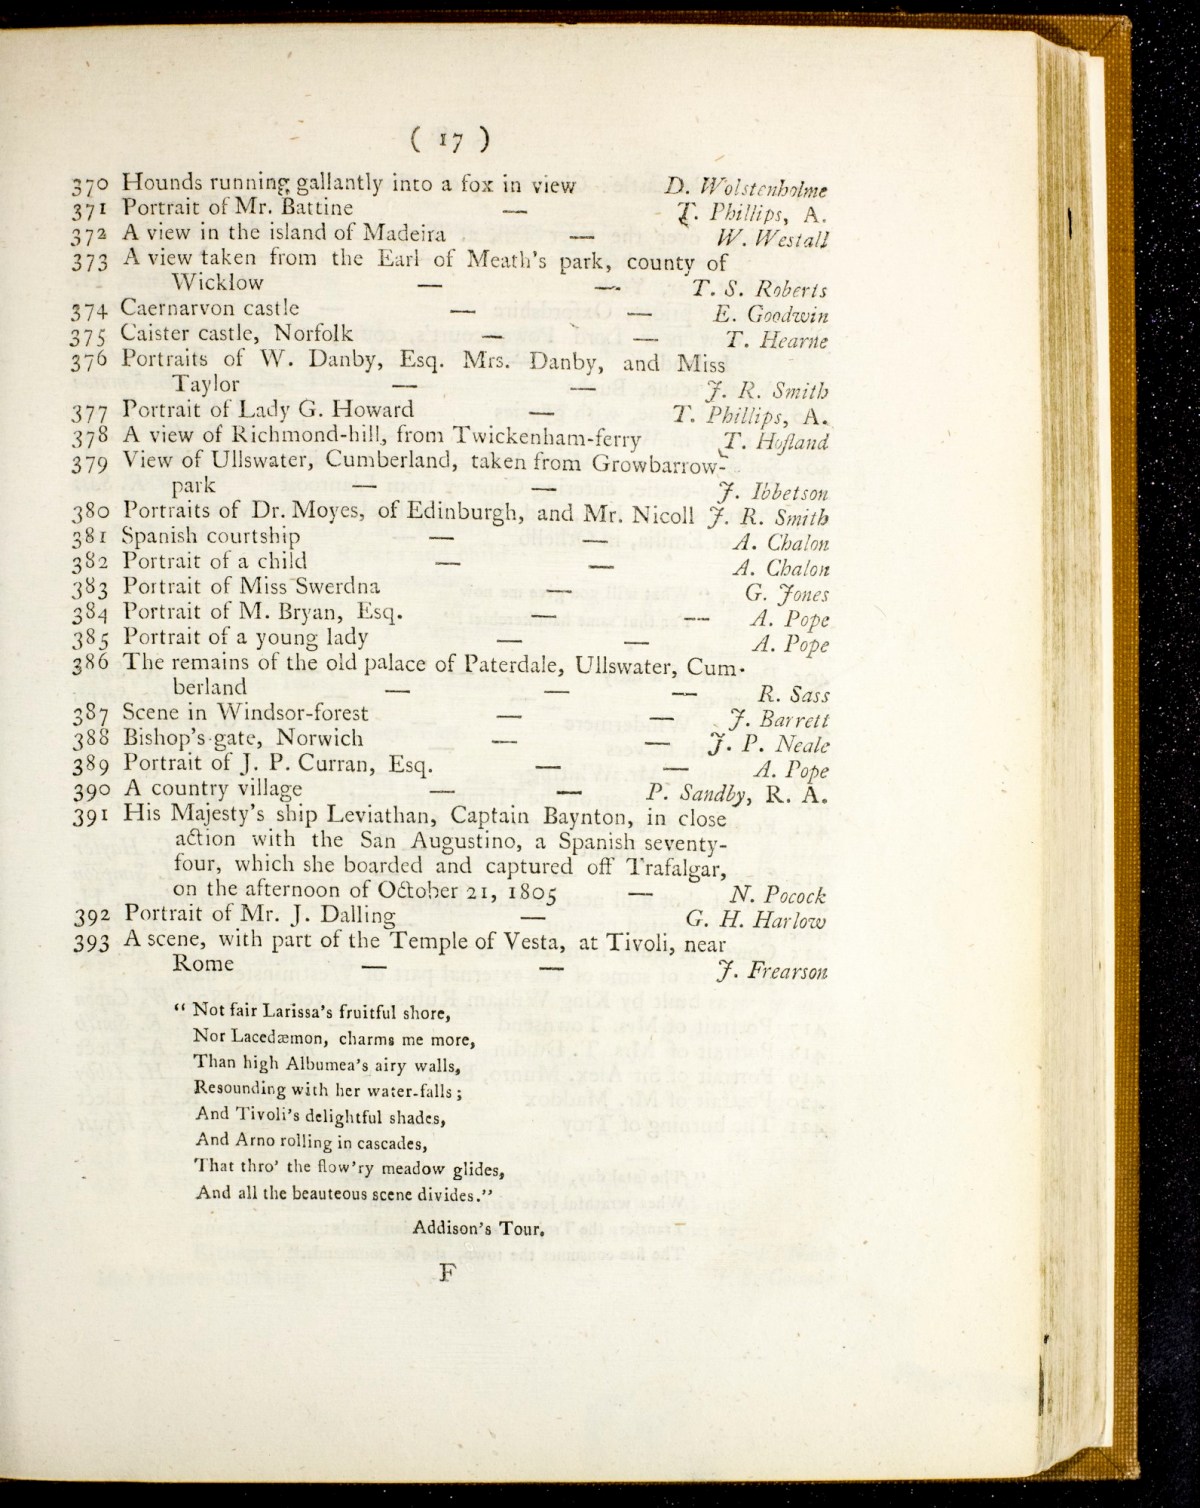 ( 17 )
370 Hounds running gallantly into a fox in view D. Wolstenholme
371 Portrait of Mr. Battine — T. Phillips, A.
372 A view in the island of Madeira — W. Westall
373 A view taken from the Earl of Meath's park, county of
Wicklow — — T. S. Roberts
374 Caernarvon castle — — E. Goodwin
375 Caister castle, Norfolk — — T. Hearne
376 Portraits of W. Danby, Esq. Mrs. Danby, and Miss
Taylor — — J. R. Smith
377 Portrait of Lady G. Howard — T. Phillips, A.
378 A view of Richmond-hill, from Twickenham-ferry T. Hofland
379 View of Ullswater, Cumberland, taken from Growbarrow-
park — — J. Ibbetson
380 Portraits of Dr. Moyes, of Edinburgh, and Mr. Nicoll J. R. Smith
381 Spanish courtship — — A. Chalon
382 Portrait of a child — — A. Chalon
383 Portrait of Miss Swerdna — G. Jones
384 Portrait of M. Bryan, Esq. — — A. Pope
385 Portrait of a young lady — — A. Pope
386 The remains of the old palace of Paterdale, Ullswater, Cum-
berland — — — R. Sass
387 Scene in Windsor-forest — — J. Barrett
388 Bishop's-gate, Norwich — — J. P. Neale
389 Portrait of J. P. Curran, Esq. — — A. Pope
390 A country village — — P. Sandby, R. A.
391 His Majesty's ship Leviathan, Captain Baynton, in close
action with the San Augustino, a Spanish seventy-
four, which she boarded and captured off Trafalgar,
on the afternoon of October 21, 1805 — N. Pocock
392 Portrait of Mr. J. Dalling — G. H. Harlow
393 A scene, with part of the Temple of Vesta, at Tivoli, near
Rome — — J. Frearson
“ Not fair Larissa's fruitful shore,
Nor Lacedæmon, charms me more,
Than high Albumea's airy walls,
Resounding with her water-falls;
And Tivoli's delightful shades,
And Arno rolling in cascades,
That thro' the flow'ry meadow glides,
And all the beauteous scene divides.”
Addison's Tour.
F